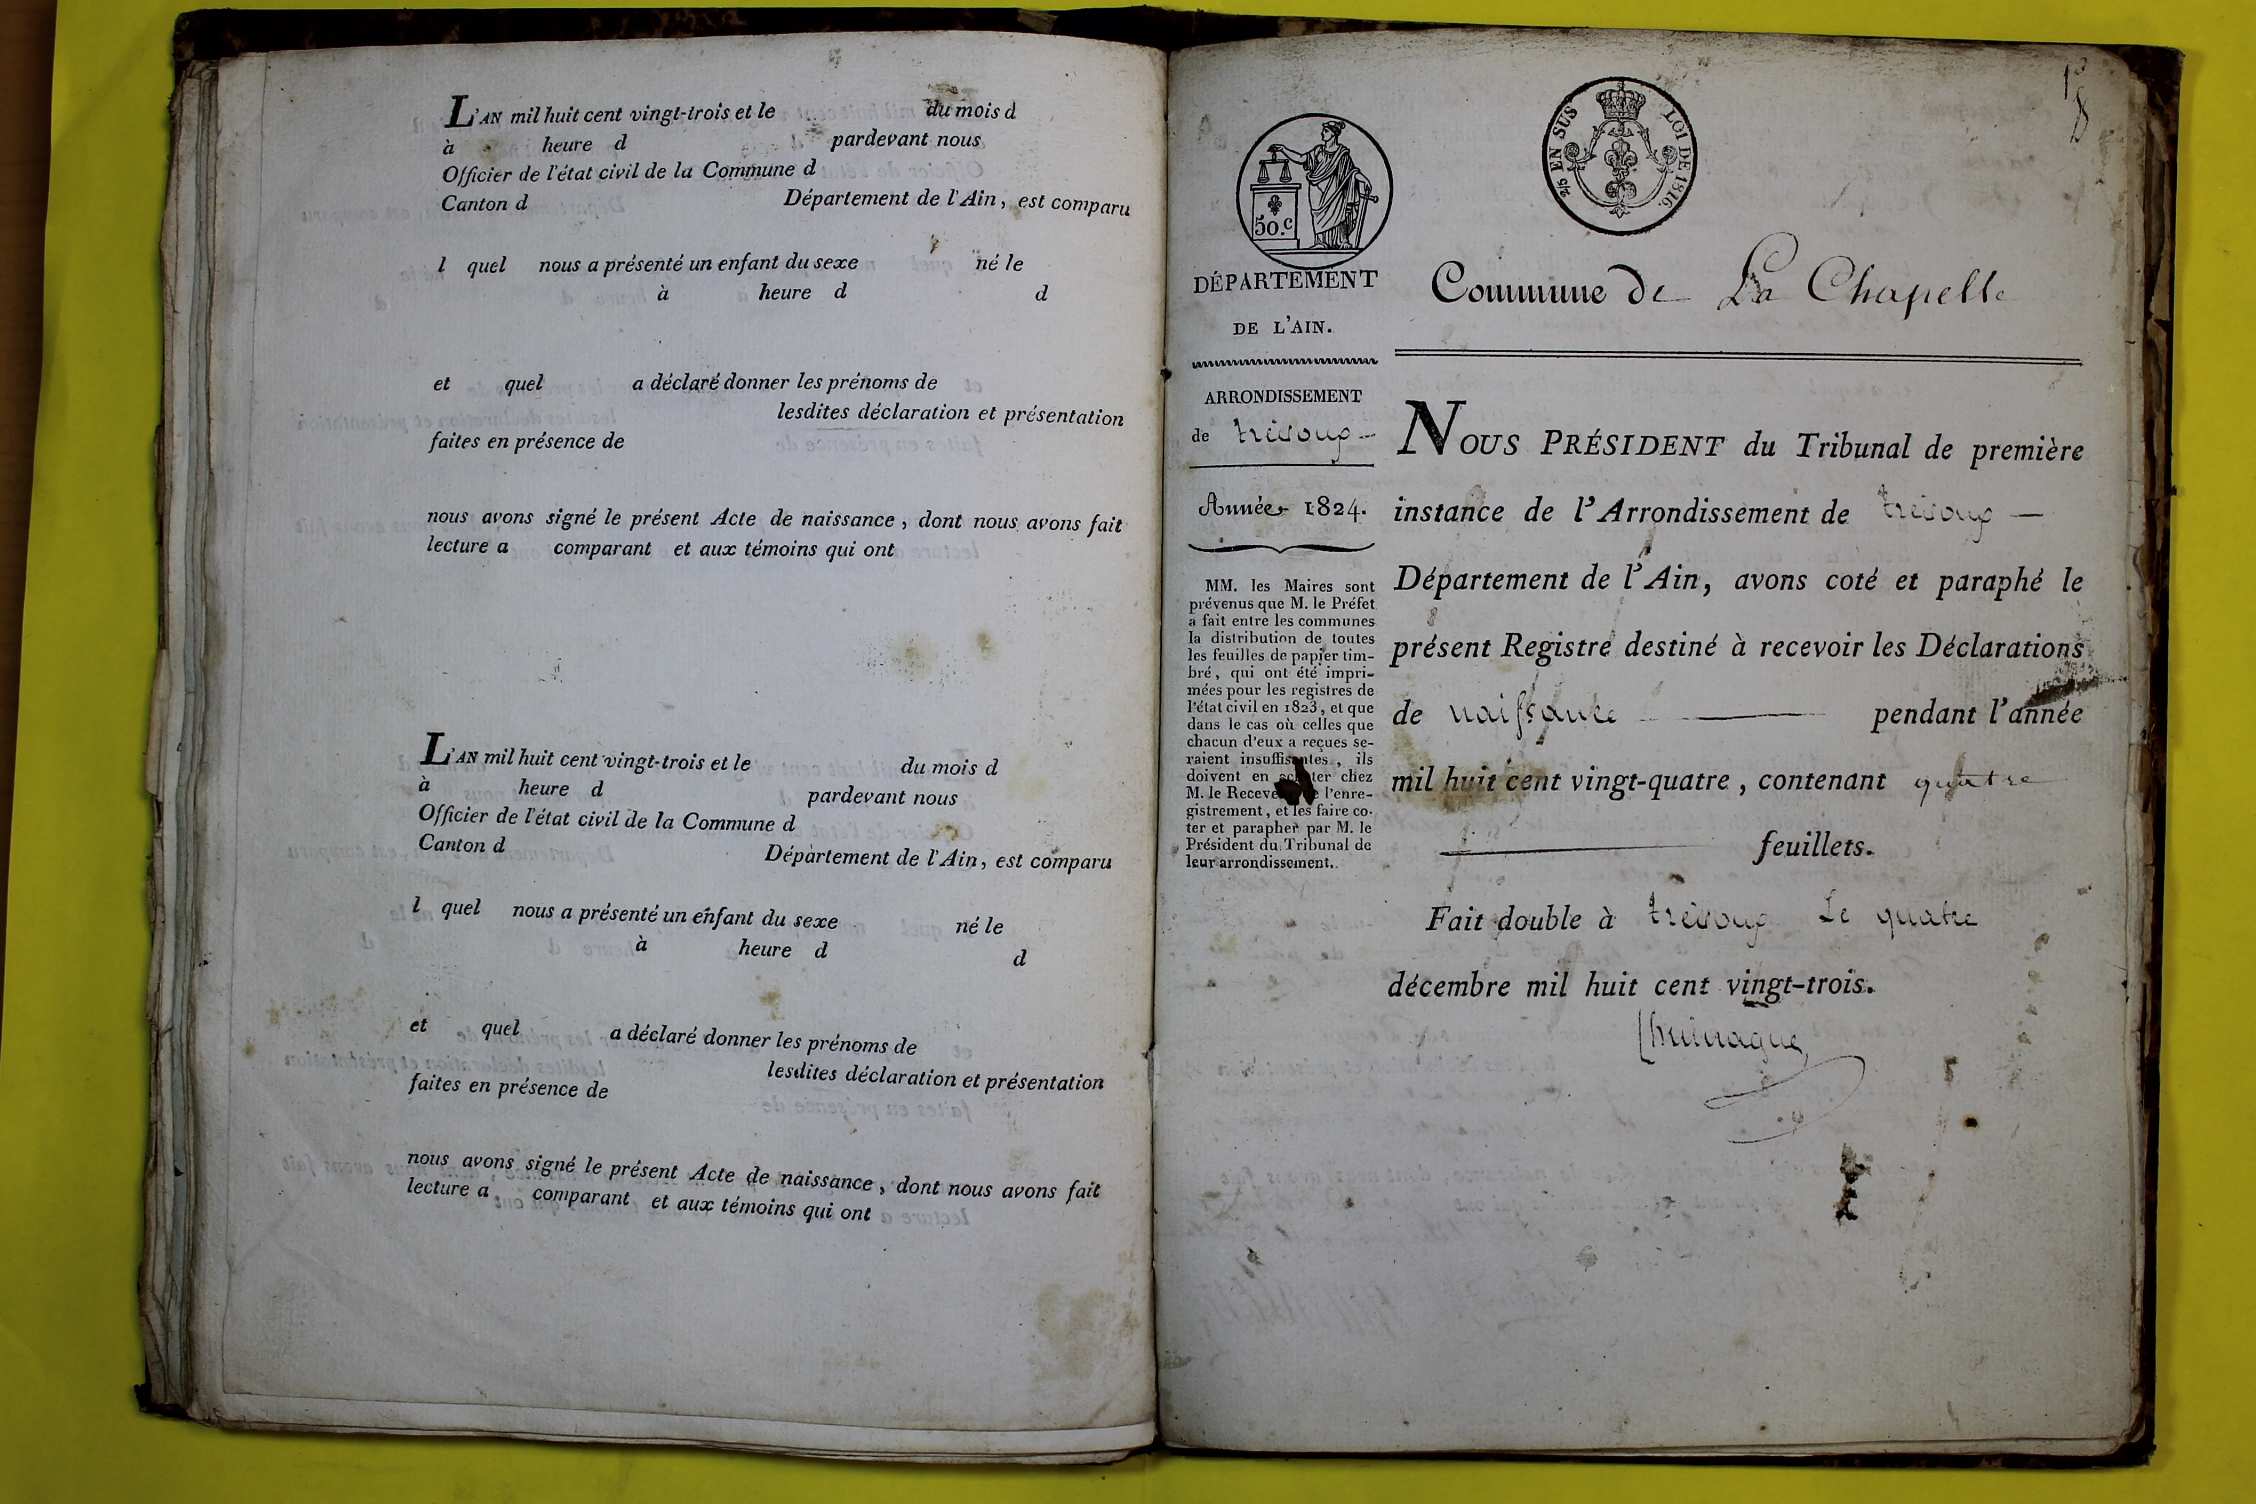 L'AN mil huit cent vingt-trois et le du mois d
à heure d pardevant nous
Officier de l'état civil de la Commune d
Canton d Département de l'Ain, est comparu
l quel nous a présenté un enfant du sexe né le
à heure d d
et quel a déclaré donner les prénoms de
lesdites déclaration et présentation
faites en présence de
nous avons signé le présent Acte de naissance, dont nous avons fait
lecture a comparant et aux témoins qui ont
L'AN mil huit cent vingt-trois et le du mois d
à heure d pardevant nous
Officier de l'état civil de la Commune d
Canton d Département de l'Ain, est comparu
l quel nous a présenté un enfant du sexe né le
à heure d d
et quel a déclaré donner les prénoms de
lesdites déclaration et présentation
faites en présence de
nous avons signé le présent Acte de naissance, dont nous avons fait
lecture a comparant et aux témoins qui ont
50.c
2/5 EN SUS LOI DE 1816.
DÉPARTEMENT
DE L'AIN.
Commune de La Chapelle
ARRONDISSEMENT
de trévoux
Année 1824.
MM. les Maires sont
prévenus que M. le Préfet
a fait entre les communes
la distribution de toutes
les feuilles de papier tim-
bré, qui ont été impri-
mées pour les registres de
l'état civil en 1823, et que
dans le cas où celles que
chacun d'eux a reçues se-
raient insuffisantes, ils
doivent en acheter chez
M. le Receveur de l'enre-
gistrement, et les faire co-
ter et parapher par M. le
Président du Tribunal de
leur arrondissement.
NOUS PRÉSIDENT du Tribunal de première
instance de l'Arrondissement de trévoux
Département de l'Ain, avons coté et paraphé le
présent Registre destiné à recevoir les Déclarations
de naissance pendant l'année
mil huit cent vingt-quatre, contenant quatre
feuillets.
Fait double à trévoux Le quatre
décembre mil huit cent vingt-trois.